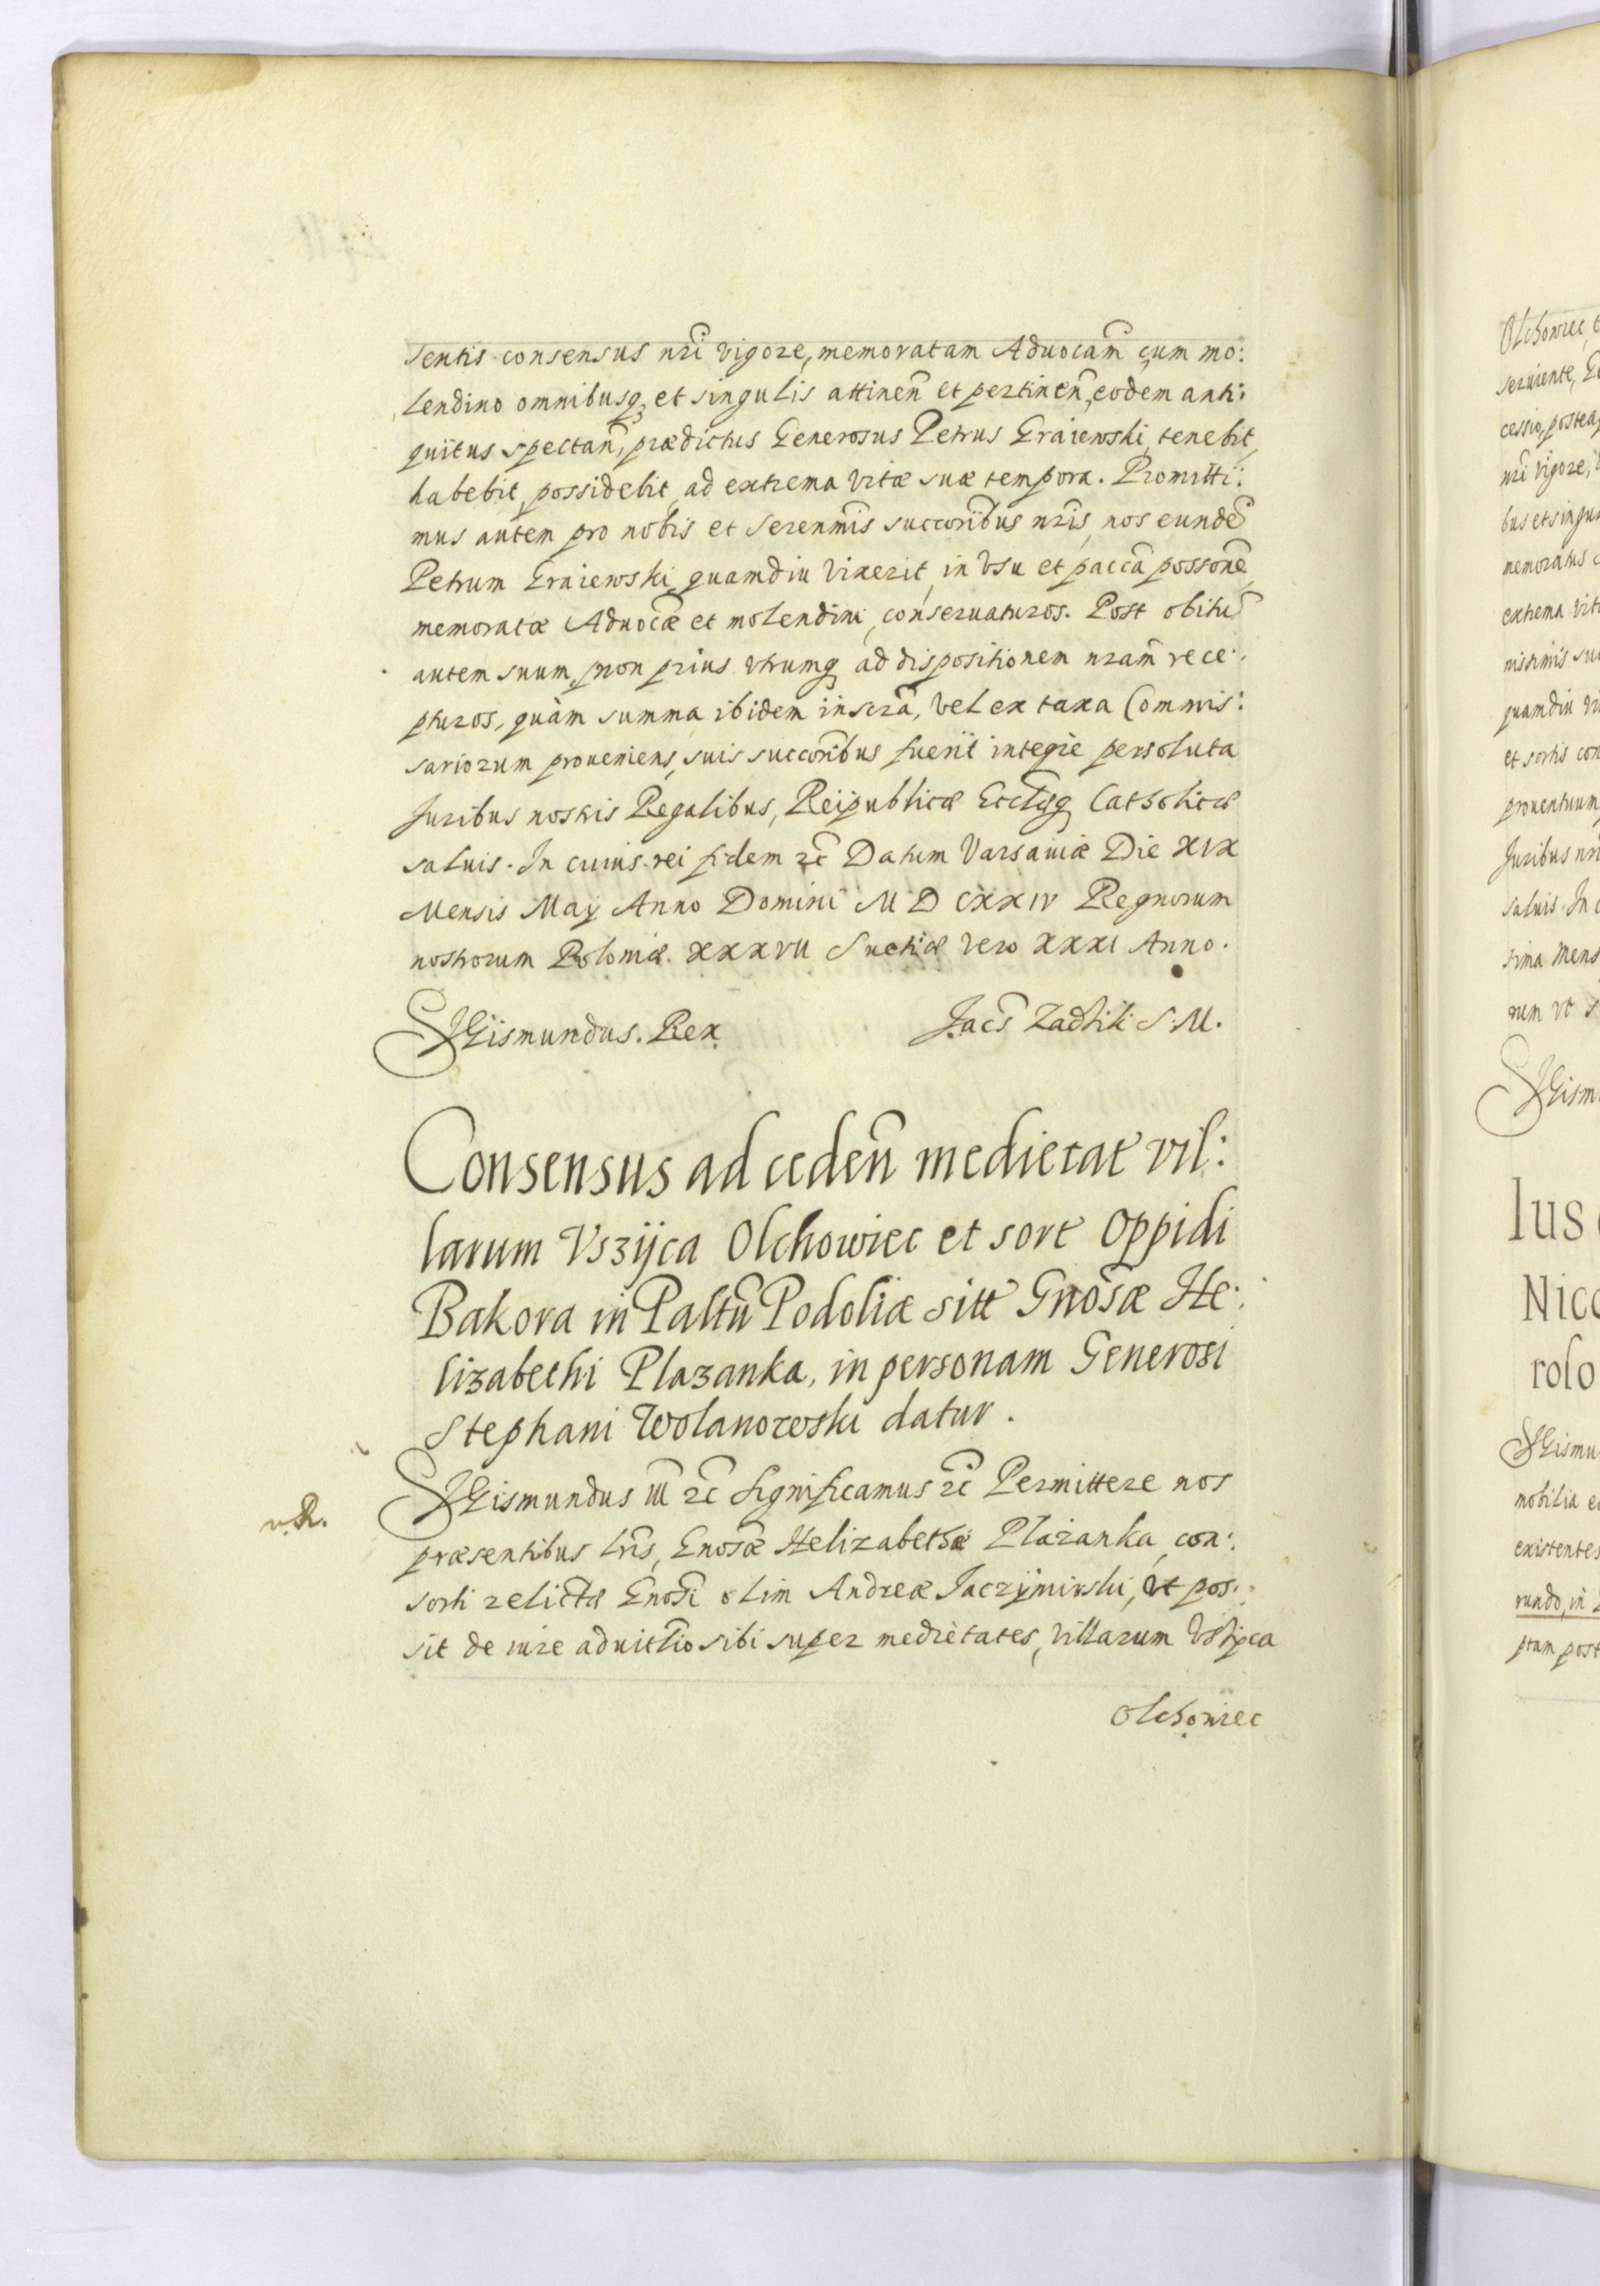 sentis consensus nri vigore, memoratam Advocam cum mo:
lendino omnibusq et singulis attinen et pertinen, eodem anti:
quitus spectan, prædictus Generosus Petrus Graiewski, tenebit,
habebit, possidebit, ad extrema vitæ suæ tempora. Promitti:
mus autem pro nobis et Serenmis succoribus nris, nos eunde
Petrum Graiewski, quamdiu vixerit, in vsu et pacca possone,
memoratæ Advocæ et molendini, conseruaturos. Post obitu
autem suum, non prius vtrumq ad dispositionem nram rece:
pturos, quàm summa ibidem inscra, vel ex taxa Commis:
sariorum proueniens, suis succoribus fuerit integre persoluta
Juribus nostris Regalibus, Reipublicæ Eccliæq Catholicæ
saluis. In cuius rei fidem rc Datum Varsaviæ Die XIX
Mensis Maÿ Anno Domini M D CXXIV Regnorum
nostrorum Poloniæ XXXVII Suetiæ vero XXXI Anno.
SIGismundus. Rex Jacs Zadzik S. M.
Consensus ad ceden medietat vil:
larum Vszÿca Olchowiec et sort Oppidi
Bakora in Paltu Podoliæ sitt Gnosæ He:
lizabethi Plazanka, in personam Generosi
Stephani Wolanowski datur.
SIGismundus III rc Significamus rc Permittere nos
v. R.
præsentibus lris, Gnosæ Helizabethæ Plażanka, con:
sorti relictæ Gnosi olim Andreæ Jaczÿmirski, vt pos:
sit de iure aduitlio sibi super medietates, villarum Vszÿca
Olchowiec
Olchowiec,
seruiente,
cessio, postea
nri vigore,
bus et singu
memoratus
extrema vit
nissimis su
quamdiu vi
et sortis con
prouentuum
Juribus nr
saluis. In
sima Mens
rum vt
SIGism
Ius
Nico
rolo
SIGismu
nobilia
existentes
rundo, in
ptam post